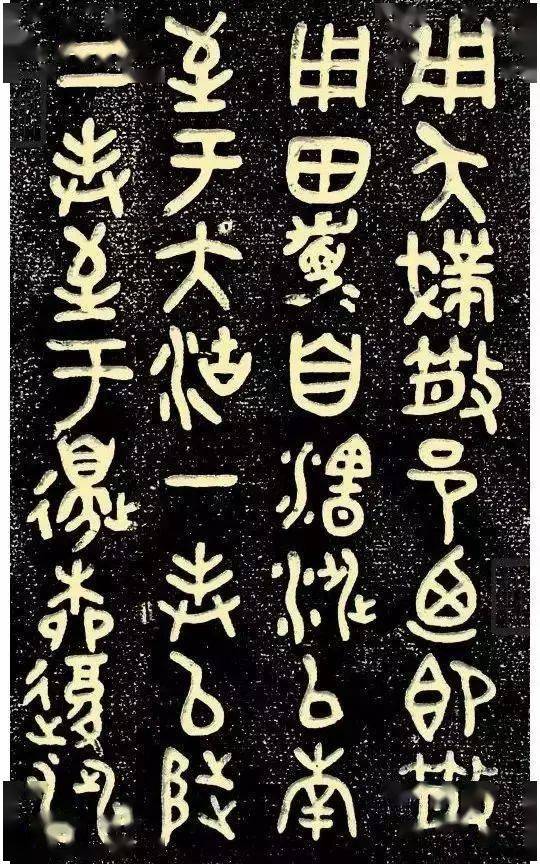 用夨散邑廼即散
用田眉自瀗涉以南
至于大沽一封以陟
二封至于邊柳復涉